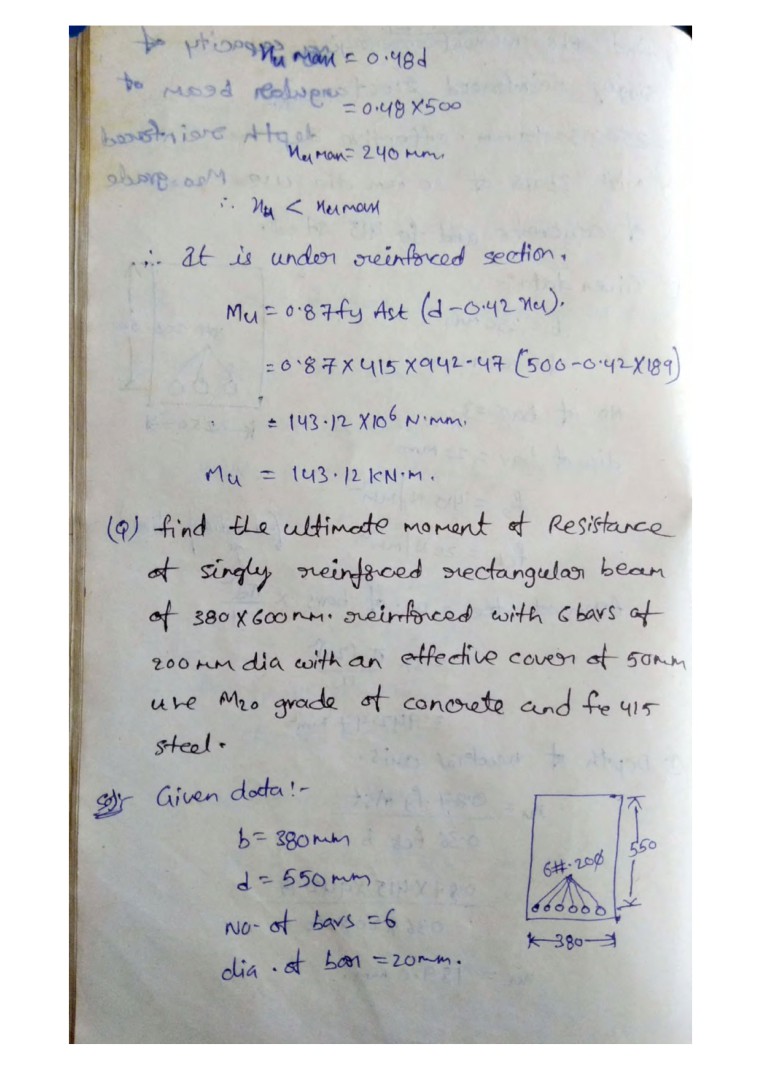 xu max = 0.48d
= 0.48 X 500
xu max = 240 mm.
∴ xu < xu max
∴ It is under reinforced section.
Mu = 0.87 fy Ast (d - 0.42 xu).
= 0.87 X 415 X 942.47 (500 - 0.42 X 189)
= 143.12 X 10⁶ N.mm.
Mu = 143.12 KN.M.
(Q) find the ultimate moment of Resistance
of singly reinforced rectangular beam
of 380 X 600 mm. reinforced with 6 bars of
200 mm dia with an effective cover of 50mm
use M20 grade of concrete and fe 415
steel.
Sol:- Given data:-
b = 380 mm
d = 550 mm
No. of bars = 6
dia. of bar = 20mm.
6#-20ϕ
550
380